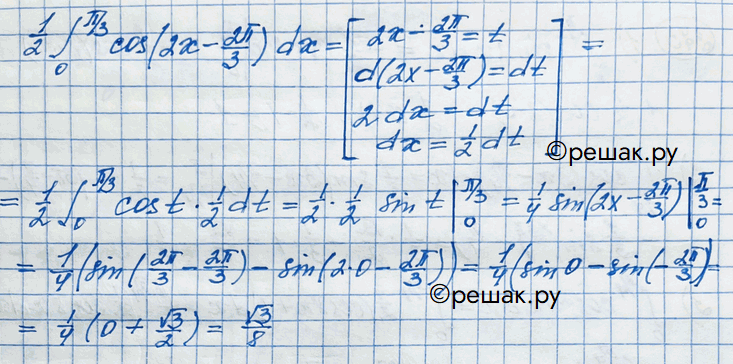 1/2 ∫₀^{π/3} cos(2x - 2π/3) dx = [2x - 2π/3 = t
d(2x - 2π/3) = dt
2 dx = dt
dx = 1/2 dt] =
©решак.ру
= 1/2 ∫₀^{π/3} cos t · 1/2 dt = 1/2 · 1/2 sin t |₀^{π/3} = 1/4 sin(2x - 2π/3) |₀^{π/3} =
= 1/4 (sin(2π/3 - 2π/3) - sin(2·0 - 2π/3)) = 1/4 (sin 0 - sin(-2π/3)) =
©решак.ру
= 1/4 (0 + √3/2) = √3/8